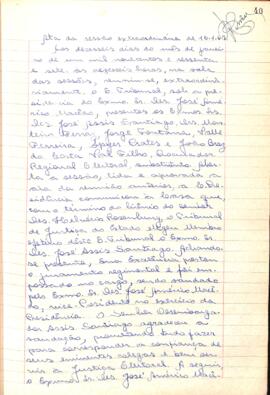 40
Ata da sessão extraordinária de 16.1.67
Aos dezesseis dias do mês de janei-
ro de um mil novecentos e sessenta
e sete, às dezesseis horas, na sala
das sessões, reuniu-se, extraordina-
riamente, o E. Tribunal, sob a pre-
sidência do Exmo. Sr. Des. José Amé-
rico Macêdo, presentes os Exmos. Srs.
Des. José Assis Santiago, Drs.
Ferraz, Jorge Fontana, Valle
Ferreira, Lopes Prates e João Braz
da Costa Val Filho, Procurador
Regional Eleitoral substituto. Aber-
ta a sessão, lida e aprovada a
ata da reunião anterior, a E. Pre-
sidência comunica à Casa que,
com o término do biênio do Senhor
Des. Helvécio Rosenburg, o Tribunal
de Justiça do Estado elegeu membro
efetivo dêste E. Tribunal o Exmo. Sr.
Des. José Assis Santiago. Achando-
se presente, Sua Excelência prestou
o juramento regimental e foi em-
possado no cargo, sendo saudado
pelo Exmo. Sr. Des. José Américo Macê-
do, vice-Presidente no exercício da
Presidência. O Senhor Desembarga-
dor Assis Santiago agradeceu a
saudação, prometendo tudo fazer
para corresponder à confiança de
seus eminentes colegas e bem ser-
vir à Justiça Eleitoral. A seguir,
o Exmo. Sr. Des. José Américo Macê-